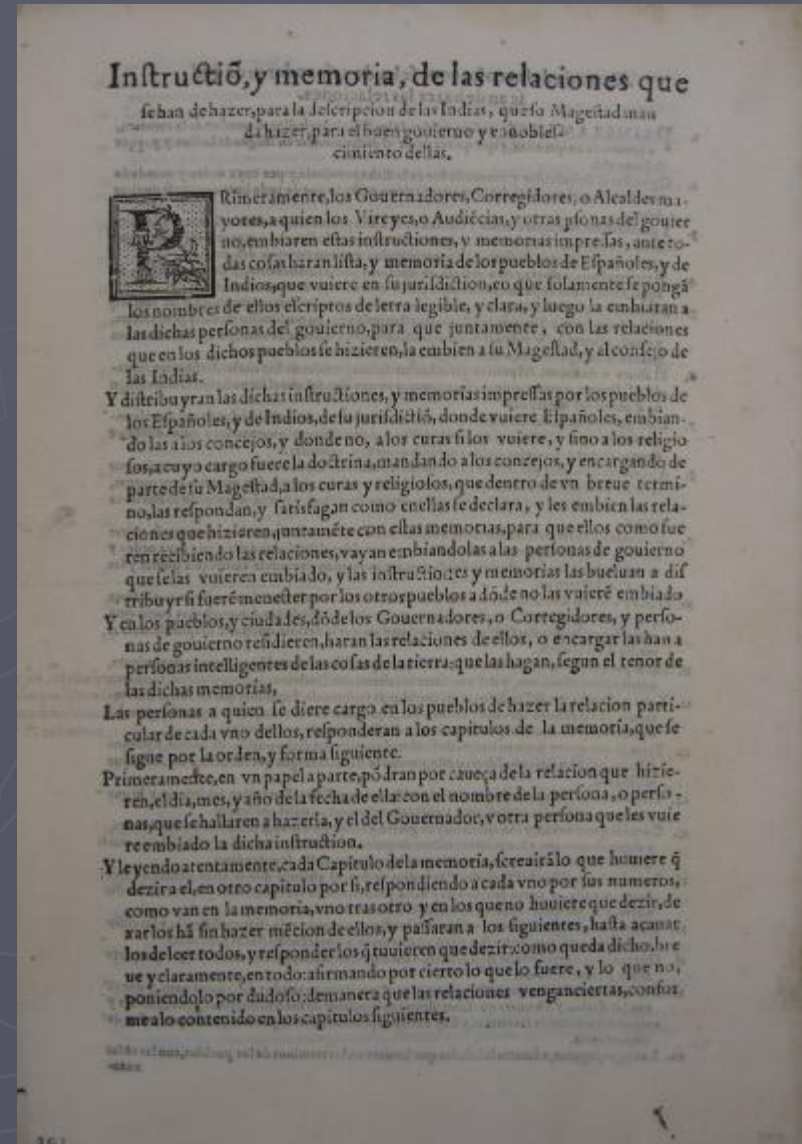 Inſtructiõ, y memoria, de las relaciones que
ſe han de hazer, para la deſcripcion de las Indias, que ſu Mageſtad man
da hazer, para el buen gouierno y ennobleſ-
cimiento dellas.
PRimeramente, los Gouernadores, Corregidores, o Alcaldes ma-
yores, a quien los Vireyes, o Audiẽcias, y otras pſonas del gouier
no, embiaren eſtas inſtructiones, y memorias impreſſas, ante to-
das coſas haran liſta, y memoria de los pueblos de Eſpañoles, y de
Indios, que vuiere en ſu juriſdiction, en que ſolamente ſe pongã
los nombres de ellos eſcriptos de letra legible, y clara, y luego la embiaran a
las dichas perſonas del gouierno, para que juntamente, con las relaciones
que en los dichos pueblos ſe hizieren, la embien a ſu Mageſtad, y al conſejo de
las Indias.
Y diſtribuyran las dichas inſtructiones, y memorias impreſſas por los pueblos de
los Eſpañoles, y de Indios, de ſu juriſdictiõ, donde vuiere Eſpañoles, embian-
do las a los concejos, y donde no, a los curas ſi los vuiere, y ſino a los religio
ſos, a cuyo cargo fuere la doctrina, mandando a los concejos, y encargando de
parte de ſu Mageſtad, a los curas y religioſos, que dentro de vn breue termi-
no, las reſpondan, y ſatisfagan como en ellas ſe declara, y les embien las rela-
ciones que hizieren, juntamẽte con eſtas memorias, para que ellos como fue
ren recibiendo las relaciones, vayan embiandolas a las perſonas de gouierno
que ſe las vuieren embiado, y las inſtructiones y memorias las bueluan a diſ
tribuyr ſi fuerẽ meneſter por los otros pueblos a dõde no las vuierẽ embiado
Y en los pueblos, y ciudades, dõde los Gouernadores, o Corregidores, y perſo-
nas de gouierno reſidieren, haran las relaciones de ellos, o encargar las han a
perſonas intelligentes de las coſas de la tierra: que las hagan, ſegun el tenor de
las dichas memorias,
Las perſonas a quien ſe diere cargo en los pueblos de hazer la relacion parti-
cular de cada vno dellos, reſponderan a los capitulos de la memoria, que ſe
ſigue por la orden, y forma ſiguiente.
Primeramente, en vn papel a parte, põdran por caueça de la relacion que hizie-
ren, el dia, mes, y año de la fecha de ella: con el nombre de la perſona, o perſo-
nas, que ſe hallaren a hazerla, y el del Gouernador, v otra perſona que les vuie
re embiado la dicha inſtruction.
Y leyendo atentamente, cada Capitulo de la memoria, ſcreuirã lo que houiere q̃
dezir a el, en otro capitulo por ſi, reſpondiendo a cada vno por ſus numeros,
como van en la memoria, vno tras otro y en los que no houiere que dezir, de
xarlos hã ſin hazer mẽcion de ellos, y paſſaran a los ſiguientes, haſta acauar
los de leer todos, y reſponder los q̃ tuuieren que dezir: como queda dicho, bre
ue y claramente, en todo: afirmando por cierto lo que lo fuere, y lo que no,
poniendolo por dudoſo: de manera que las relaciones vengan ciertas, confor
me a lo contenido en los capitulos ſiguientes.